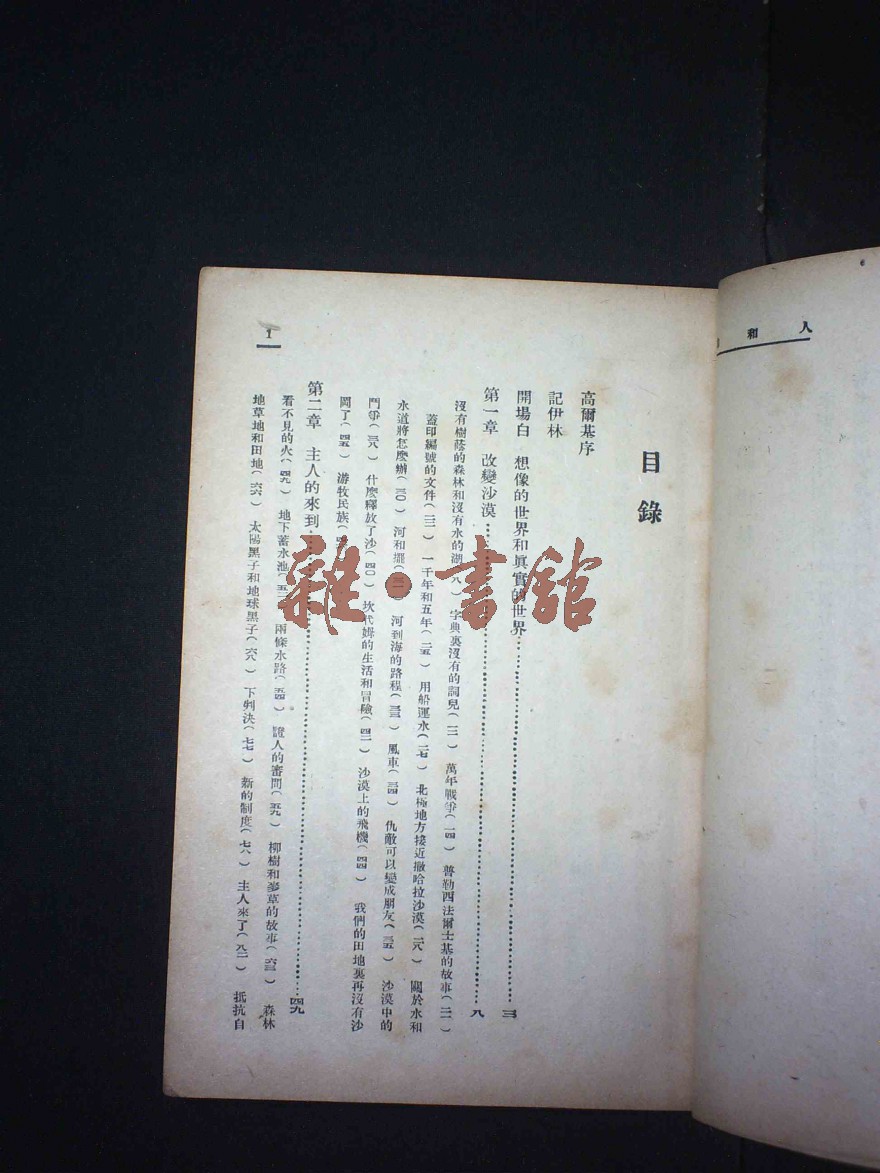 人和
目錄
高爾基序
記伊林
開場白 想像的世界和眞實的世界……三
第一章 改變沙漠……八
沒有樹蔭的森林和沒有水的湖(八) 字典裏沒有的詞兒(一三) 萬年戰爭(一四) 普勒西法爾士基的故事(二一)
蓋印編號的文件(二三) 一千年和五年(二五) 用船運水(二七) 北極地方接近撒哈拉沙漠(二八) 關於水和
水道將怎麼辦(三〇) 河和壩(三一) 河到海的路程(三三) 風車(三四) 仇敵可以變成朋友(三五) 沙漠中的
鬥爭(三八) 什麼釋放了沙(四〇) 坎代姆的生活和冒險(四二) 沙漠上的飛機(四四) 我們的田地裏再沒有沙
了(四五) 游牧民族(
第二章 主人的來到……四九
看不見的火(四九) 地下蓄水池(五三) 兩條水路(五四) 證人的審問(五九) 柳樹和麥草的故事(六三) 森林
地草地和田地(六六) 太陽黑子和地球黑子(六八) 下判決(七七) 新的制度(七八) 主人來了(八二) 抵抗自
1
雜·書館